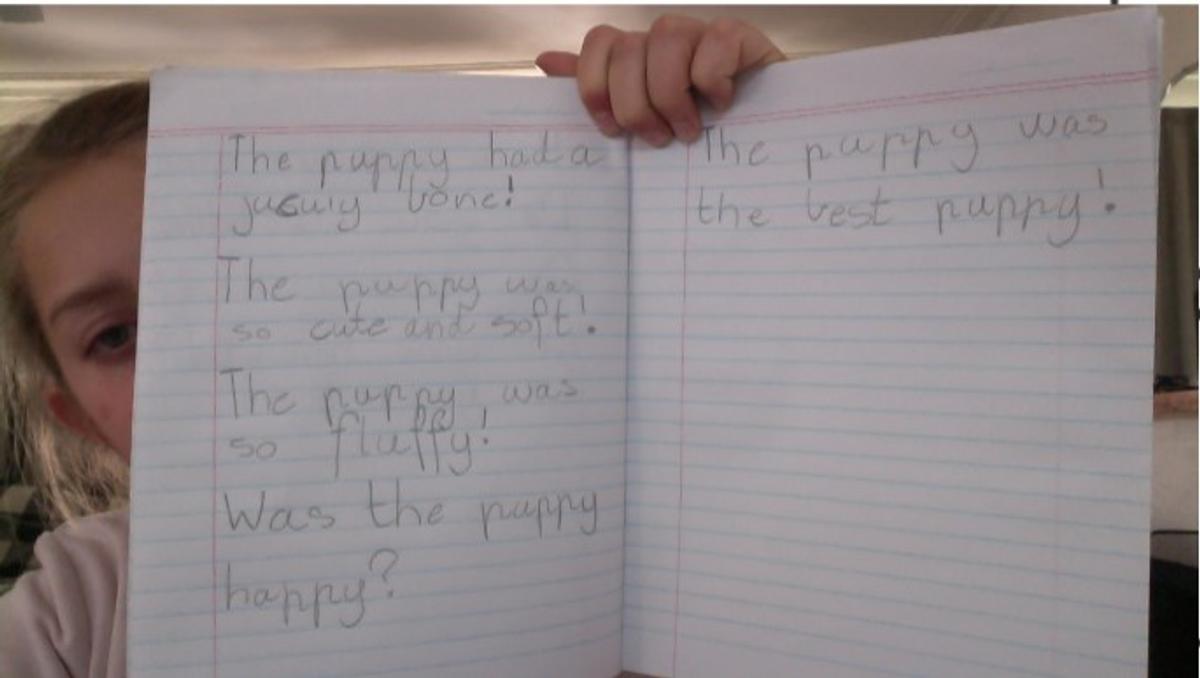 The puppy had a
jucuiy bone!
The puppy was
so cute and soft!
The puppy was
so fluffy!
Was the puppy
happy?
The puppy was
the best puppy!